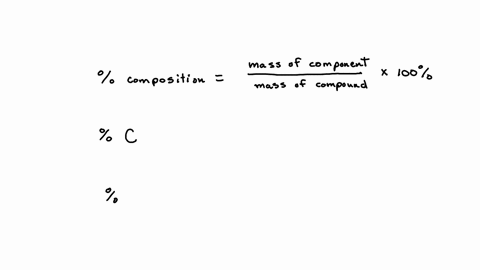 % composition = mass of component / mass of compound x 100%
% C
%